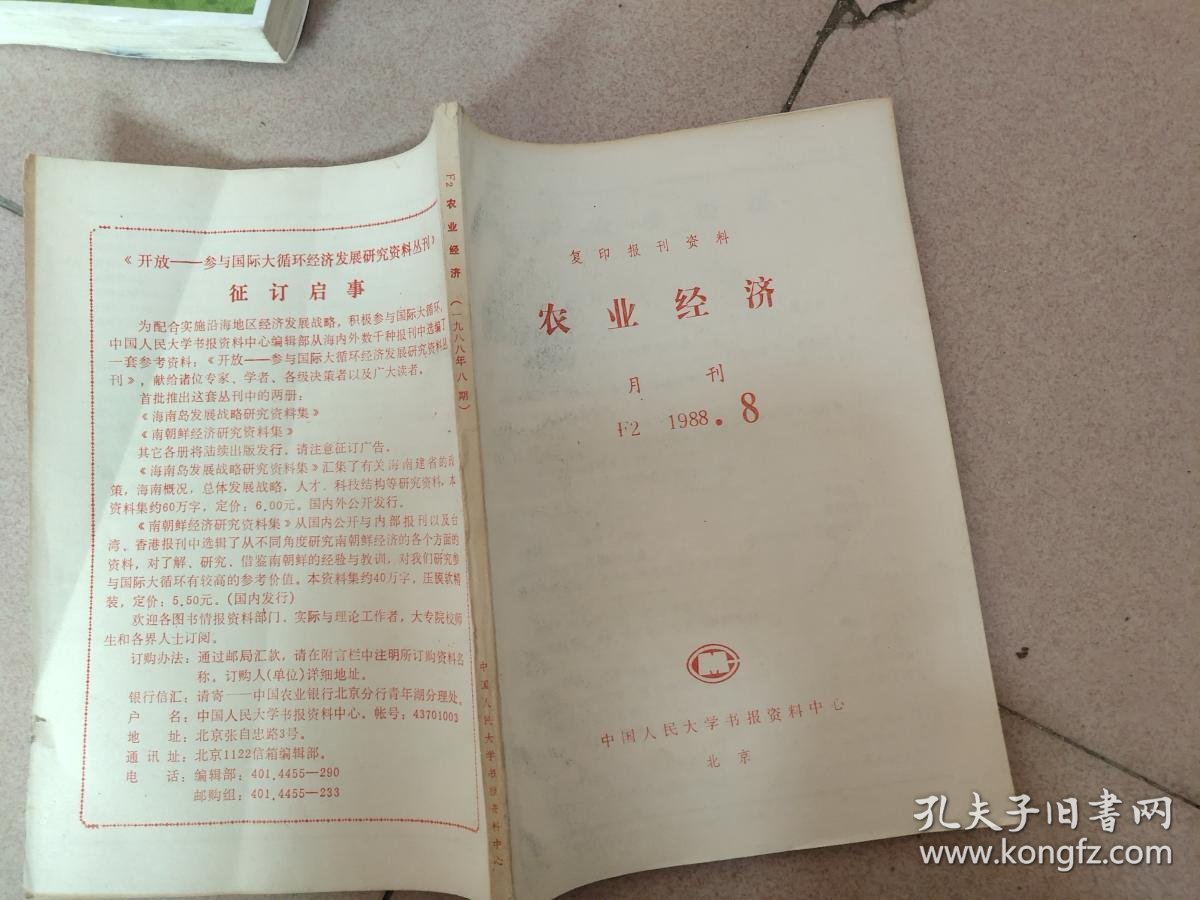 《开放——参与国际大循环经济发展研究资料丛刊》
征订启事
为配合实施沿海地区经济发展战略，积极参与国际大循环，
中国人民大学书报资料中心编辑部从海内外数千种报刊中选编了
一套参考资料：《开放——参与国际大循环经济发展研究资料丛
刊》，献给诸位专家、学者、各级决策者以及广大读者。
首批推出这套丛刊中的两册：
《海南岛发展战略研究资料集》
《南朝鲜经济研究资料集》
其它各册将陆续出版发行。请注意征订广告。
《海南岛发展战略研究资料集》汇集了有关海南建省的政
策，海南概况，总体发展战略，人才、科技结构等研究资料，本
资料集约60万字，定价：6.00元。国内外公开发行。
《南朝鲜经济研究资料集》从国内公开与内部报刊以及台
湾、香港报刊中选辑了从不同角度研究南朝鲜经济的各个方面的
资料，对了解、研究、借鉴南朝鲜的经验与教训，对我们研究参
与国际大循环有较高的参考价值。本资料集约40万字，压膜软精
装，定价：5.50元。(国内发行)
欢迎各图书情报资料部门、实际与理论工作者，大专院校师
生和各界人士订阅。
订购办法：通过邮局汇款，请在附言栏中注明所订购资料名
称，订购人(单位)详细地址。
银行信汇：请寄——中国农业银行北京分行青年湖分理处。
户 名：中国人民大学书报资料中心。帐号：43701003
地 址：北京张自忠路3号。
通讯址：北京1122信箱编辑部。
电 话：编辑部：401.4455—290
邮购组：401.4455—233
F2 农业经济（一九八八年八期）
中国人民大学书报资料中心
复印报刊资料
农业经济
月刊
F2 1988.8
中国人民大学书报资料中心
北京
孔夫子旧書网
www.kongfz.com